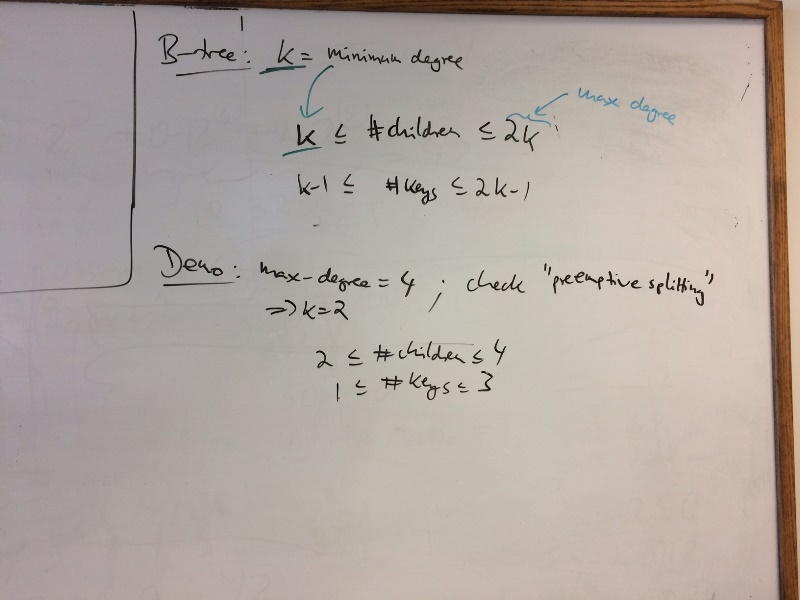 B-tree: k = minimum degree
max degree
k ≤ #children ≤ 2k
k-1 ≤ #keys ≤ 2k-1
Demo: max-degree = 4 ; check "preemptive splitting"
⇒ k=2
2 ≤ #children ≤ 4
1 ≤ #keys ≤ 3